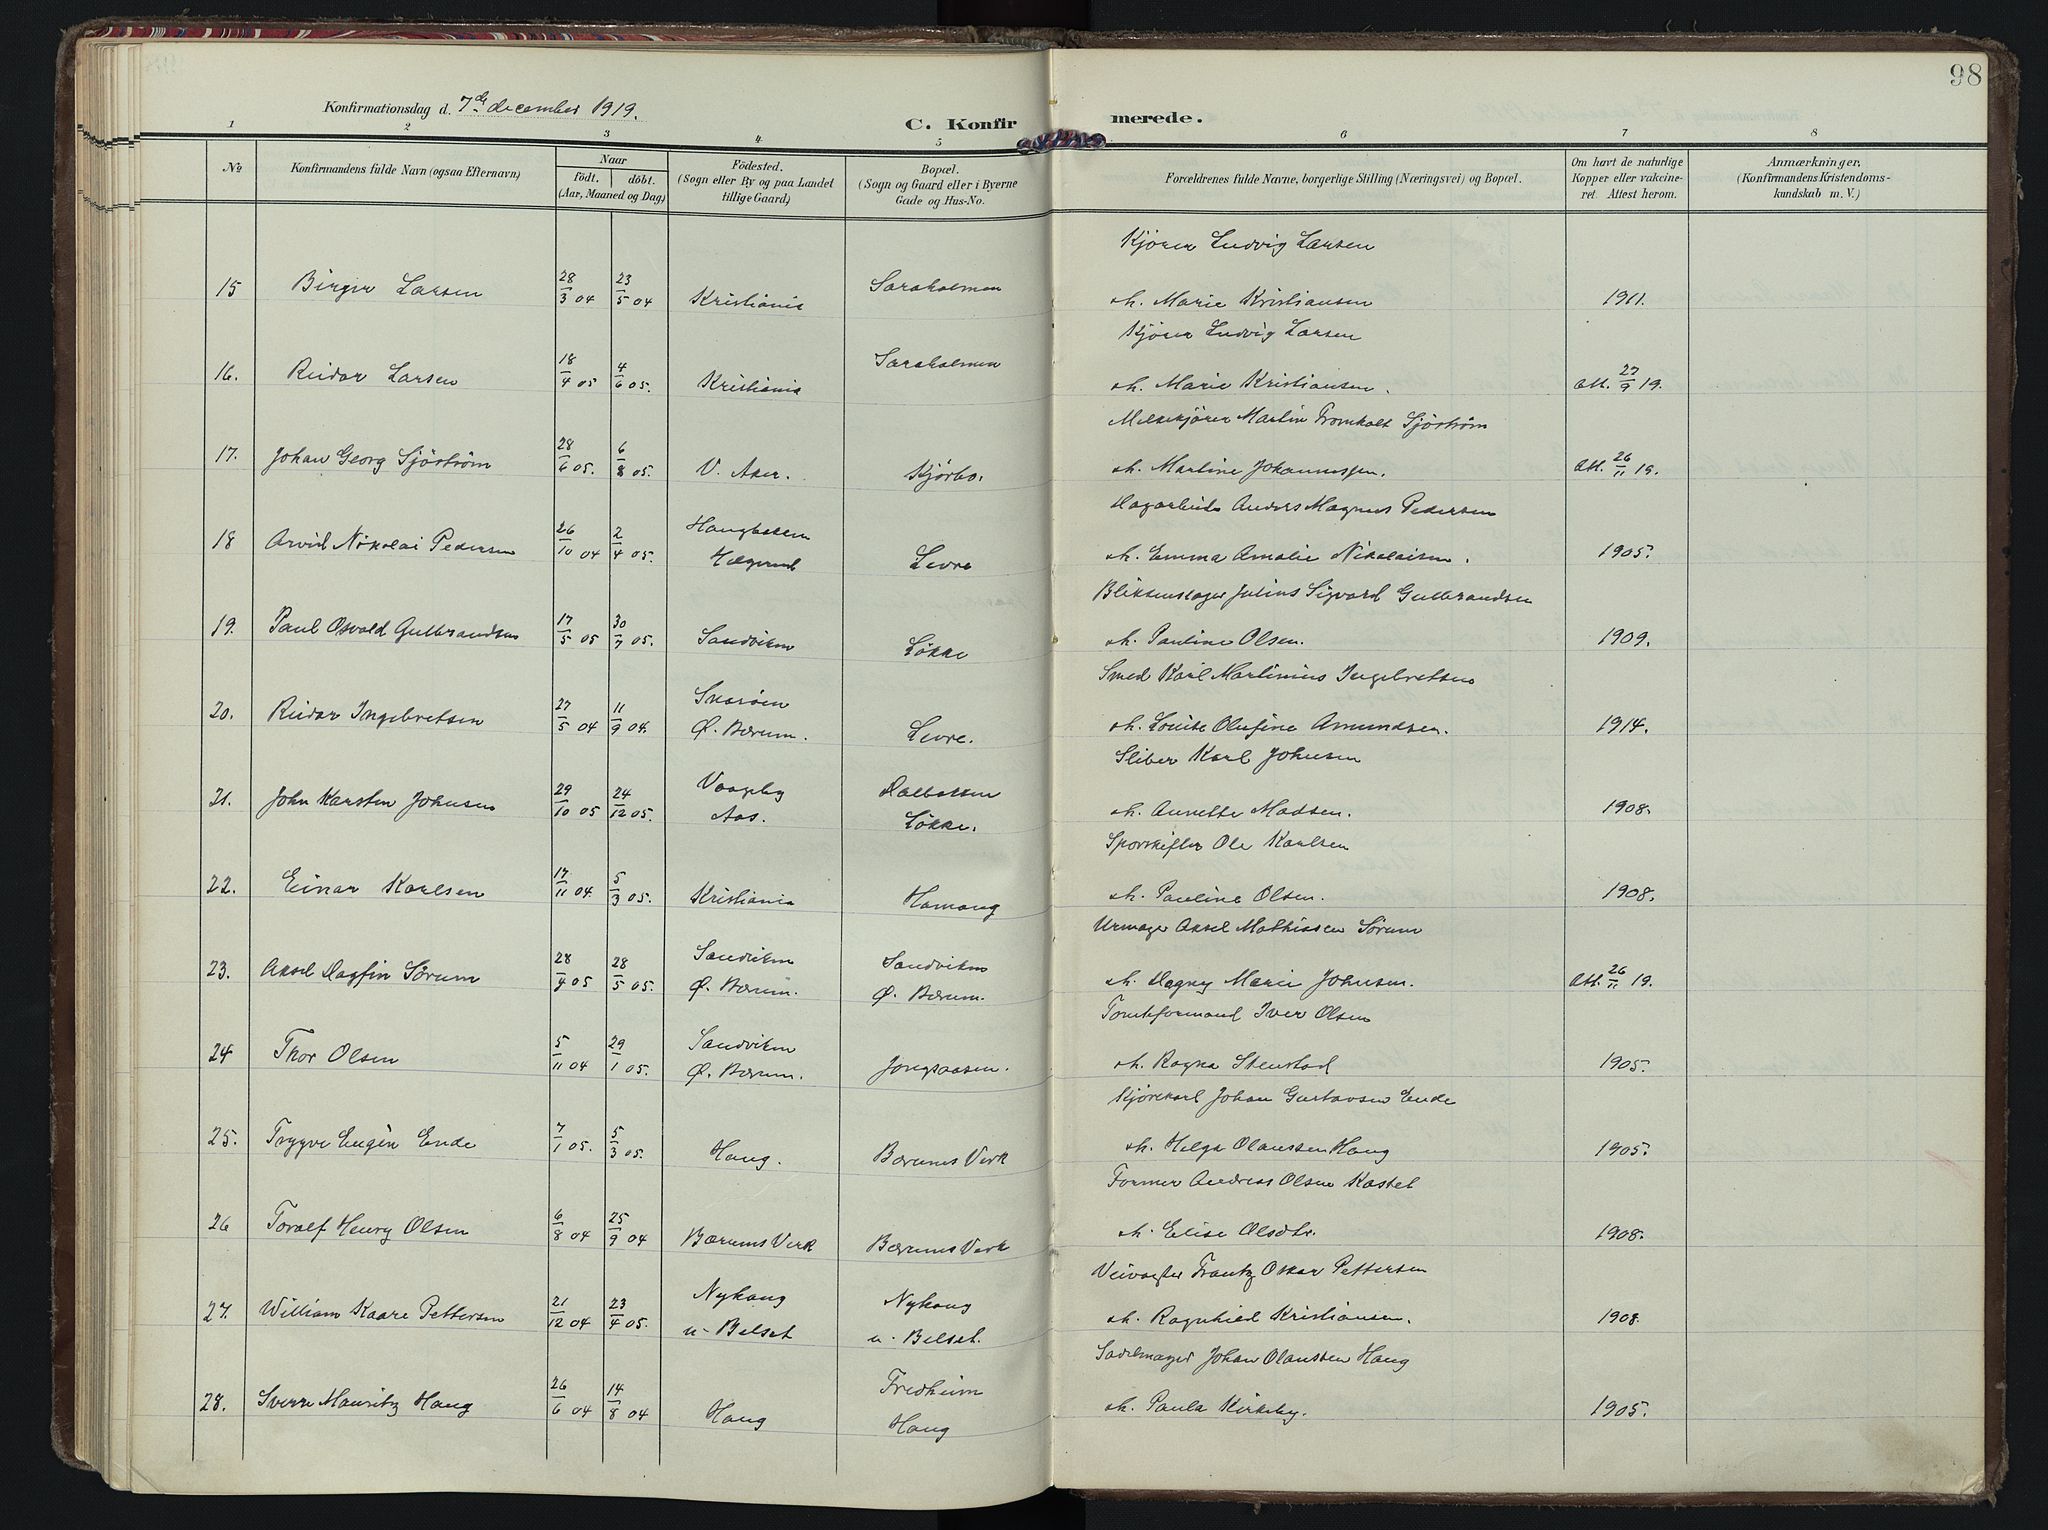 98
Konfirmationsdag d. 7de december 1919.
C. Konfirmerede.
1 2 3 4 5 6 7 8
No
Konfirmandens fulde Navn (ogsaa Efternavn)
Naar
födt. döbt.
(Aar, Maaned og Dag)
Födested.
(Sogn eller By og paa Landet
tillige Gaard)
Bopæl.
(Sogn og Gaard eller i Byerne
Gade og Hus-No.
Forældrenes fulde Navne, borgerlige Stilling (Næringsvei) og Bopæl.
Om havt de naturlige
Kopper eller vakcine-
ret. Attest herom.
Anmærkninger,
(Konfirmandens Kristendoms-
kundskab m. V.)
Kjører Ludvig Larsen
15 Birger Larsen 28/3 04 23/5 04 Kristiania Saraholmen m. Marie Kristiansen 1911.
Kjører Ludvig Larsen
16. Reidar Larsen 18/4 05 4/6 05. Kristiania Saraholmen m. Marie Kristiansen. Att. 27/9 19.
Melkekjører Martin Tromholt Sjöström
17. Johan Georg Sjöström 28/6 05. 6/8 05. V. Aker. Kjørbo. m. Martine Johannessen. Att. 26/11 19.
Dagarbeider Anders Magnus Pedersen
18 Arvid Nikolai Pedersen 26/10 04 2/4 05. Haugbakken Helgerud Levre m. Emma Amalie Nikolaisen. 1905.
Blikkenslager Julius Sigvard Gulbrandsen
19. Paul Osvald Gulbrandsen 17/5 05 30/7 05. Sandviken Løkke m. Pauline Olsen. 1909.
Smed Karl Martinius Ingebretsen
20. Reidar Ingebretsen 27/5 04 11/9 04. Snarøen Ø. Bærum. Levre. m. Louise Olufine Amundsen. 1914.
Sliber Karl Johnsen
21. John Karsten Johnsen 29/10 05 24/12 05. Vaageby Aas. Dalbakken Løkke. m. Annette Madsen. 1908.
Sporskifter Ole Karlsen
22. Einar Karlsen 17/11 04. 5/3 05. Kristiania Hamang m. Pauline Olsen. 1908.
Urmager Aksel Mathissen Sørum
23. Aksel Dagfin Sørum 28/4 05 28/5 05. Sandviken Ø. Bærum. Sandviken Ø. Bærum. m. Dagny Marie Johnsen. Att. 26/11 19.
Tomteformand Iver Olsen
24 Thor Olsen 5/11 04 29/1 05. Sandviken Ø. Bærum. Jongsaasen. m. Ragna Stenstad 1905.
Kjørekarl Johan Gustavsen Ende
25. Trygve Eugèn Ende 7/1 05. 5/3 05. Haug. Bærums Verk m. Helga Olaussen Haug 1905.
Former Andreas Olsen Kastet
26 Toralf Henry Olsen 6/8 04 25/9 04 Bærums Verk Bærums Verk m. Elise Olsdtr. 1908.
Veivogter Frantz Oskar Pettersen
27. William Kaare Pettersen 21/12 04 23/4 05. Nyhaug u. Belset Nyhaug u. Belset. m. Ragnhild Kristiansen. 1908.
Sadelmager Johan Olaussen Haug
28. Sverre Mauritz Haug 26/6 04 14/8 04 Haug Fredheim Haug m. Paula Kirkeby. 1905.